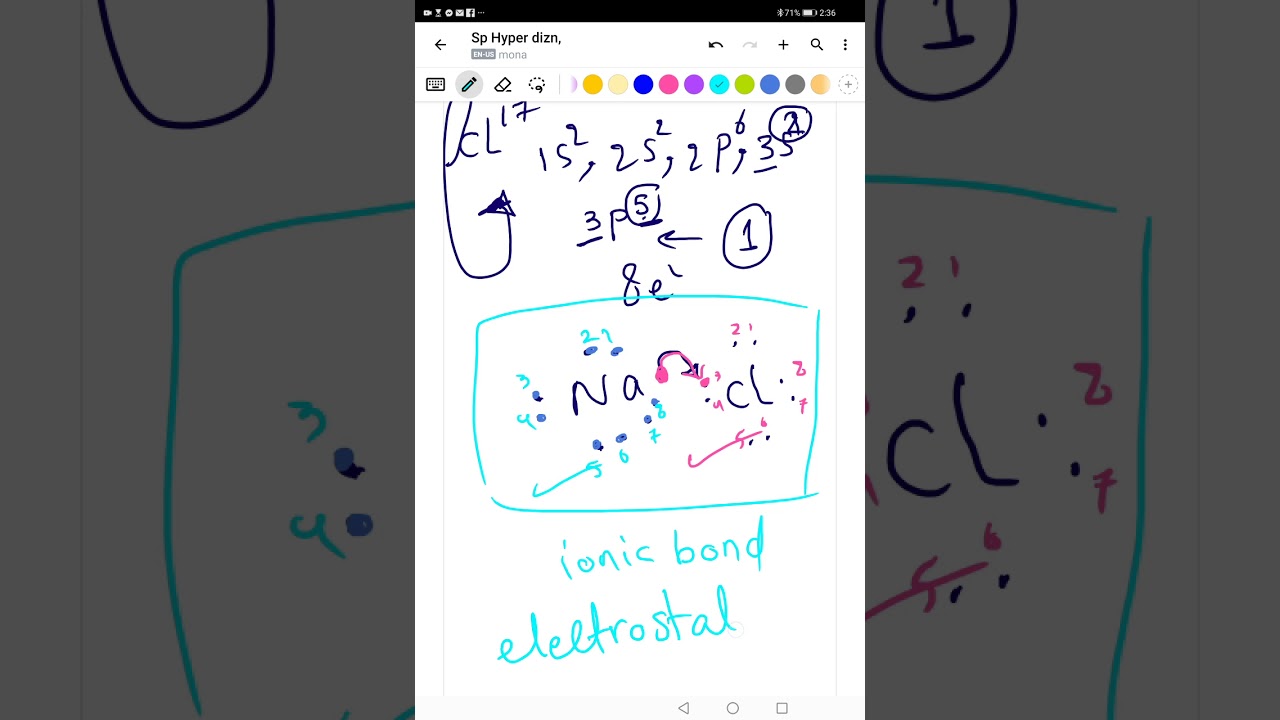 71% 2:36
Sp Hyper dizn,
EN-US mona
CL 17 1S2, 2S2, 2P6, 3S2
3P5 ← 1
8e
2 1 2 1
3 Na 3 Cl 8
4 8 4 7
7
5 6 5 6
ionic bond
electrostal